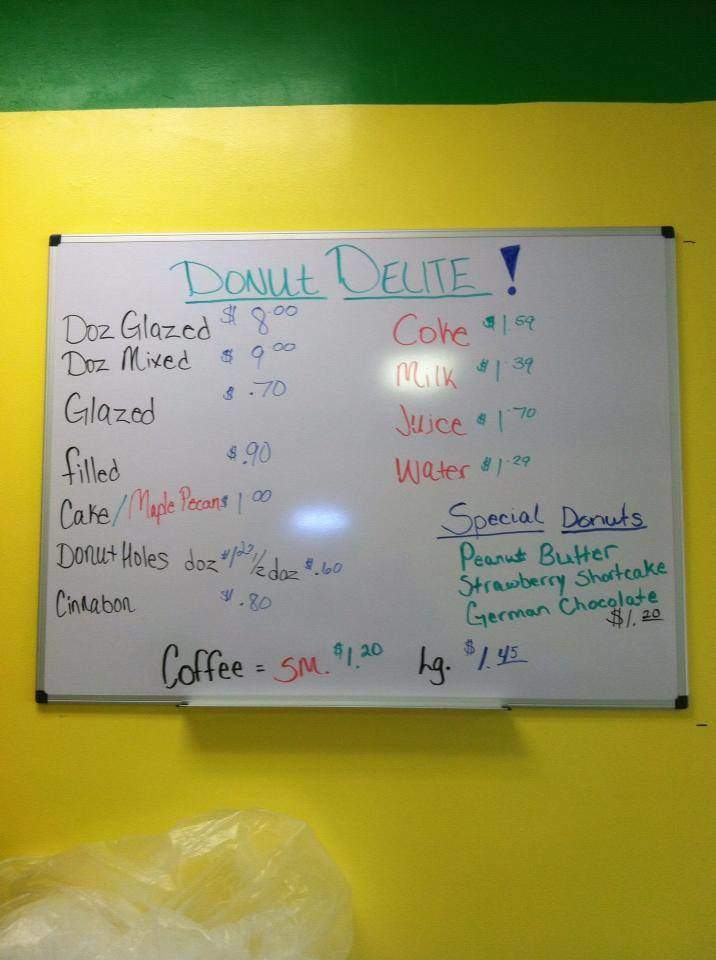 DONUT DELITE!
Doz Glazed $ 8.00
Doz Mixed $ 9.00
Glazed $ .70
filled $ .90
Cake/Maple Pecans $ 1.00
Donut Holes doz 1/2 doz $ .60
Cinnabon $ .80
Coke $ 1.59
Milk $ 1.39
Juice $ 1.70
Water $ 1.29
Special Donuts
Peanut Butter
Strawberry Shortcake
German Chocolate
$1.20
Coffee = SM. $1.20 Lg. $1.45